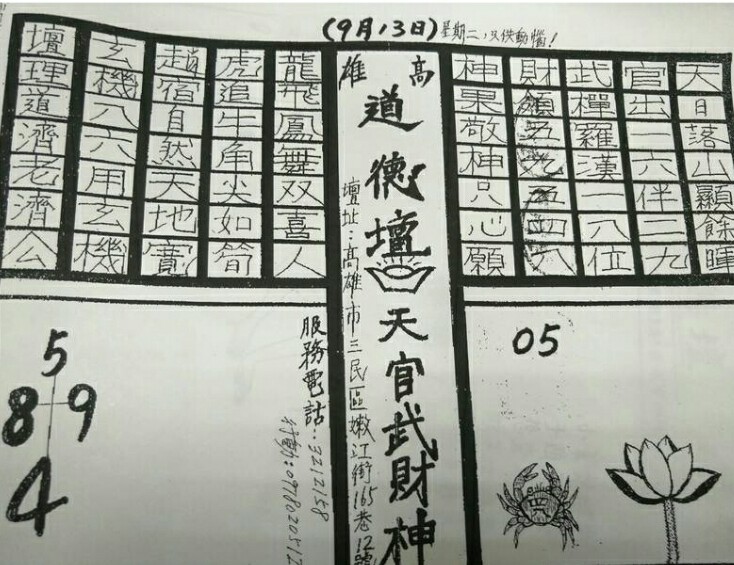 (9月13日)星期二,又供動惱!
天日落山顯餘暉
官出一六伴二九
武樿羅漢一八位
財領五
神果敬神只心願
高雄
道德壇
天官武財神
壇址:高雄市三民區嫩江街165巷12號
龍飛鳳舞双喜人
虎追牛角尖如筍
趙宿自然天地寶
玄機八六用玄機
壇理道濟老濟公
05
服務電話:3212158
行動:0978020512
5
8 9
4